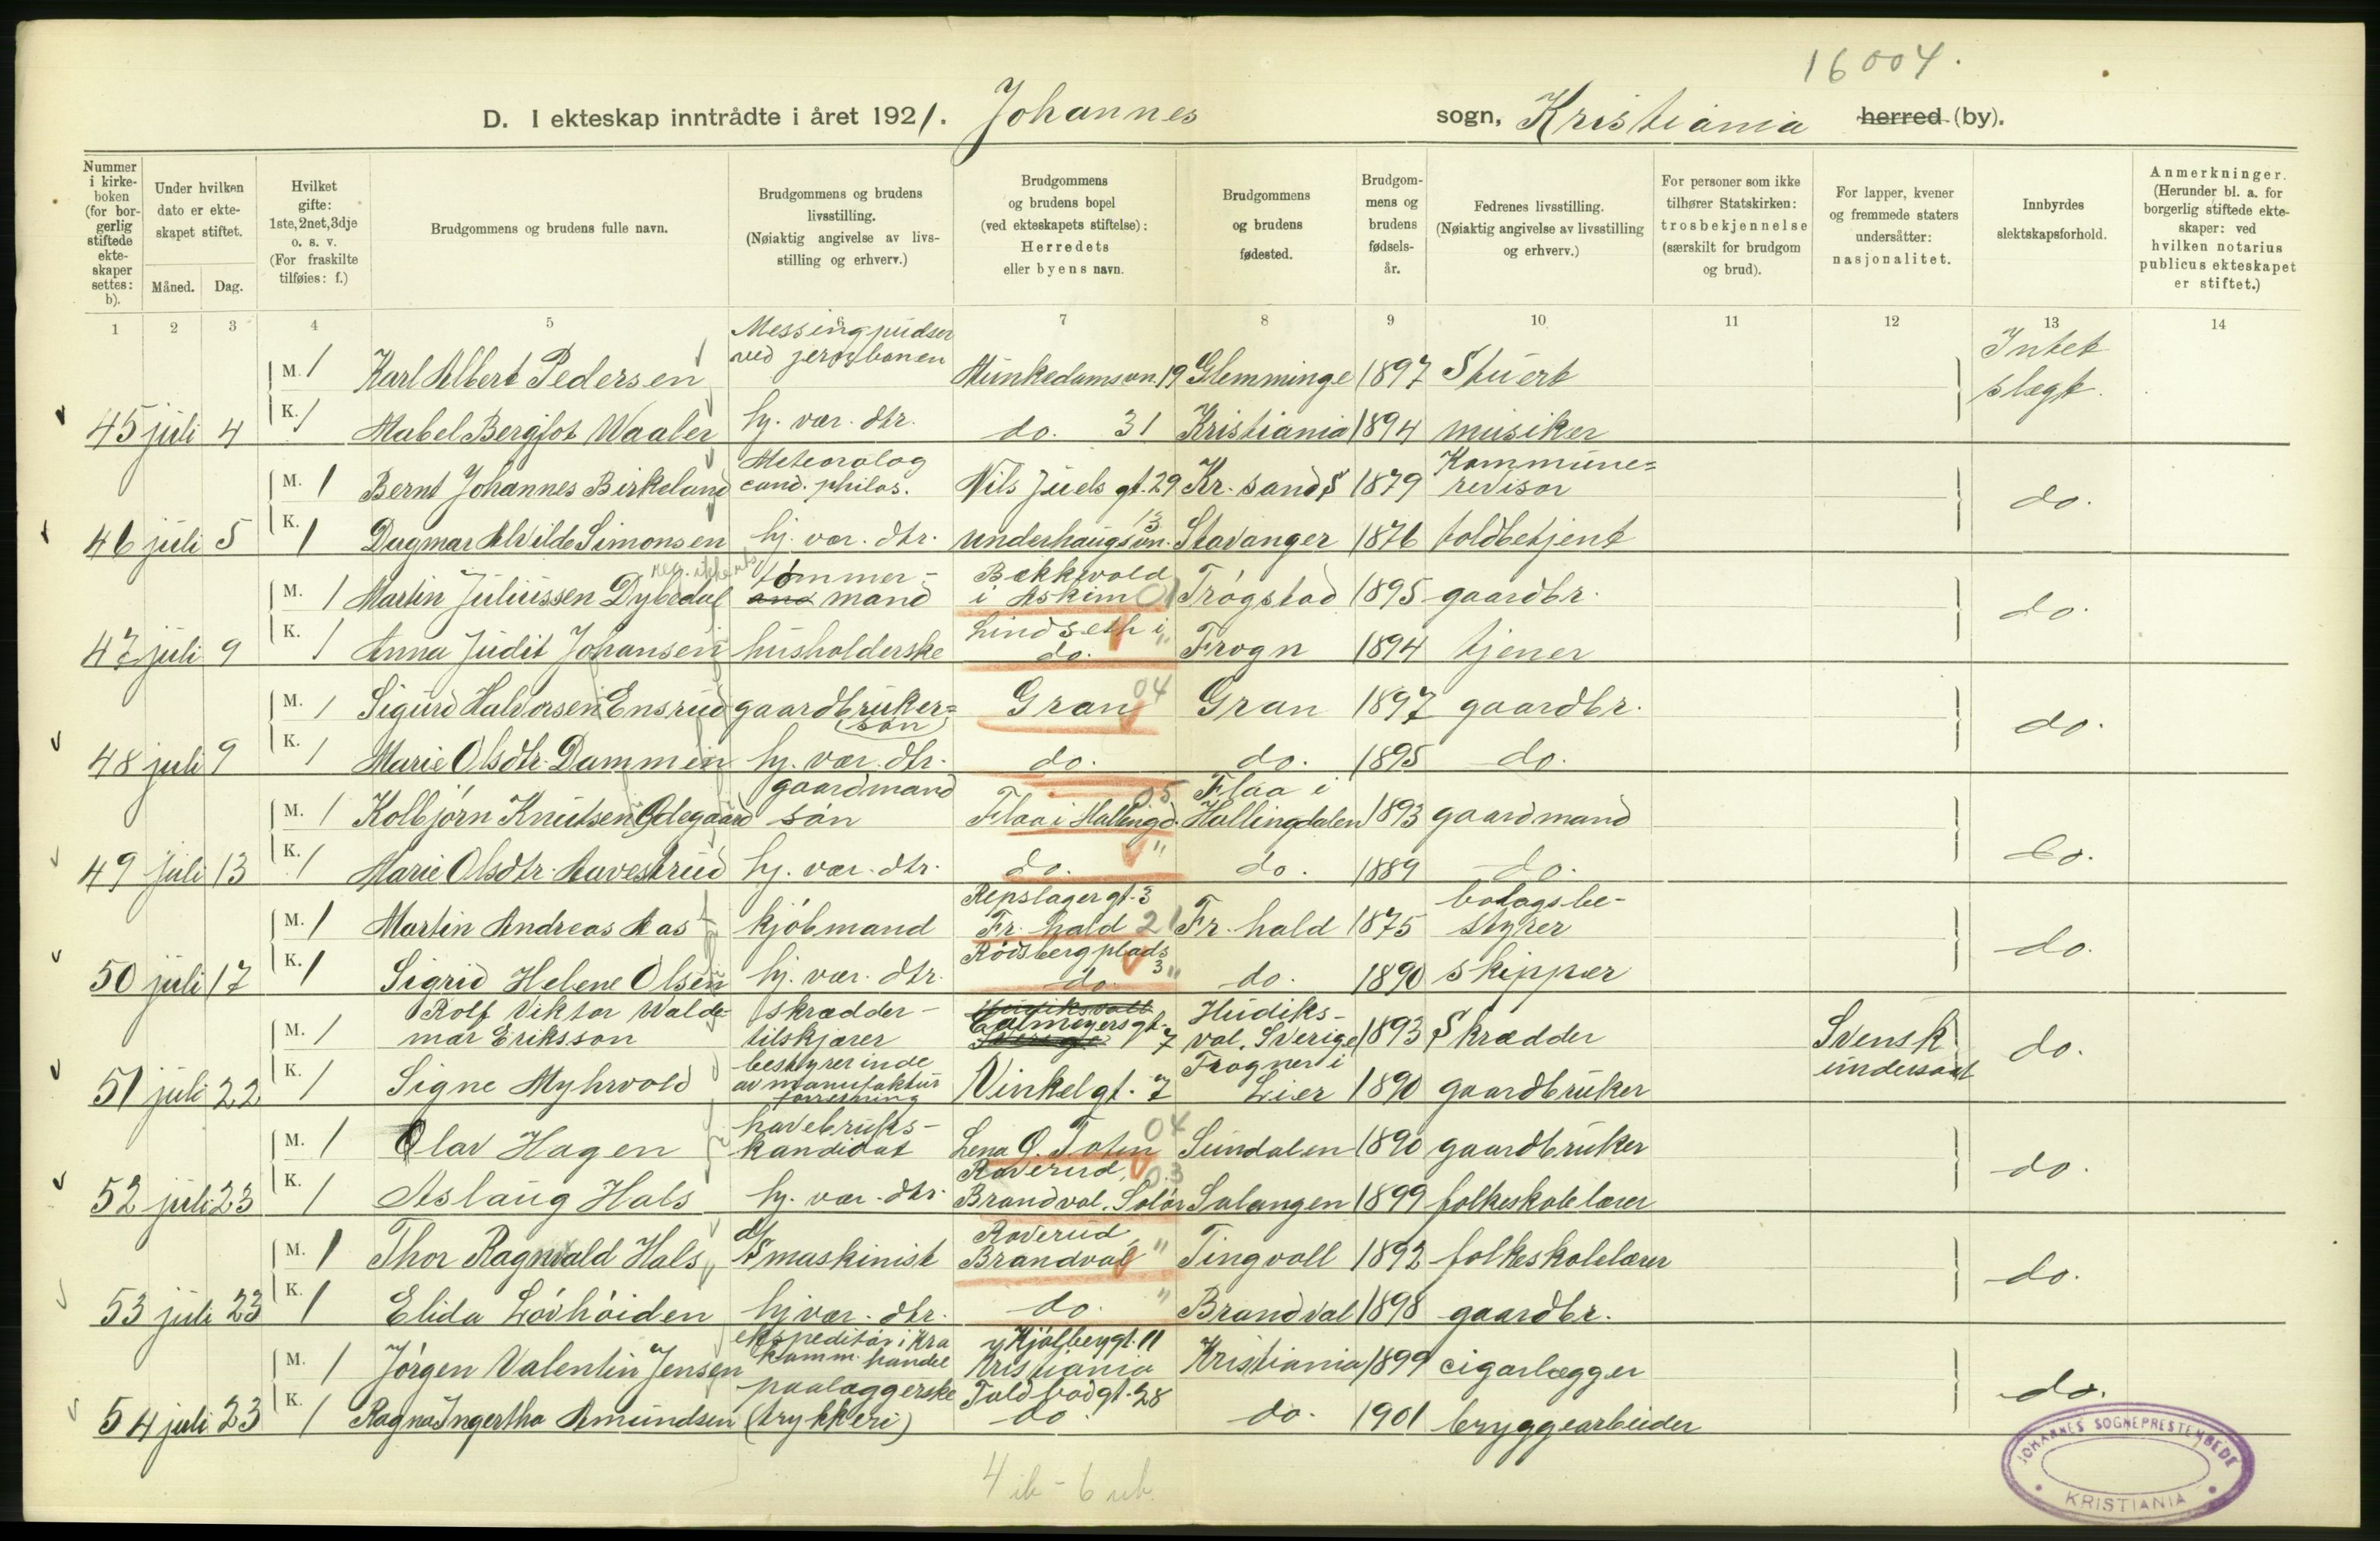 16004.
D. I ekteskap inntrådte i året 1921. Johannes sogn, Kristiania herred (by).
Nummer i kirkeboken (for borgerlig stiftede ekteskaper settes: b).
Under hvilken dato er ekteskapet stiftet.
Måned. Dag.
Hvilket gifte: 1ste, 2net, 3dje o. s. v. (For fraskilte tilføies: f.)
Brudgommens og brudens fulle navn.
Brudgommens og brudens livsstilling. (Nøiaktig angivelse av livsstilling og erhverv.)
Brudgommens og brudens bopel (ved ekteskapets stiftelse): Herredets eller byens navn.
Brudgommens og brudens fødested.
Brudgommens og brudens fødselsår.
Fedrenes livsstilling. (Nøiaktig angivelse av livsstilling og erhverv.)
For personer som ikke tilhører Statskirken: trosbekjennelse (særskilt for brudgom og brud).
For lapper, kvener og fremmede staters undersåtter: nasjonalitet.
Innbyrdes slektskapsforhold.
Anmerkninger. (Herunder bl. a. for borgerlig stiftede ekteskaper: ved hvilken notarius publicus ekteskapet er stiftet.)
1 2 3 4 5 6 7 8 9 10 11 12 13 14
M. 1 Karl Albert Pedersen Messingpudser ved jernbanen Munkedamsvn. 19 Glemminge 1897 Stuert Intet slegt.
45 juli 4 K. 1 Mabel Bergjot Waaler hj. vær. dtr. do. 31 Kristiania 1894 musiker
M. 1 Bernt Johannes Birkeland Meteorolog cand. philos. Nils Juels gt. 29 Kr. sand S 1879 Kommune= revisor do.
46 juli 5 K. 1 Dagmar Alvilde Simonsen hj. vær. dtr. Underhaugsvn. 13 Stavanger 1876 toldbetjent
M. 1 Martin Juliussen Dybedal tømmer- mand Bækkevold i Askim 01 Trøgstad 1895 gaardbr. do.
47 juli 9 K. 1 Anna Judit Johansen husholderske Lindseth i do. " Frogn 1894 tjener
M. 1 Sigurd Halvorsen Ensrud gaardbruker= søn Gran 04 Gran 1897 gaardbr. do.
48 juli 9 K. 1 Marie Olsdtr. Dammen hj. vær. dtr. do. do. 1895 do.
M. 1 Kolbjørn Knutsen Ødegaard gaardmand søn Flaa i Hallingd. 05 Flaa i Hallingdalen 1893 gaardmand do.
49 juli 13 K. 1 Marie Olsdtr. Aavestrud hj. vær. dtr. do. " do. 1889 do.
M. 1 Martin Andreas Aas kjøbmand Repslagergt. 3 Fr. hald 21 Fr. hald 1875 bolagsbe- styrer do.
50 juli 17 K. 1 Sigrid Helene Olsen hj. vær. dtr. Rødsbergplads 3 do. " do. 1890 skipper
M. 1 Rolf Viktor Walde- mar Eriksson skrædder- tilskjærer Calmeyersgt. 7 Hudiks- val, Sverige 1893 Skrædder Svensk undersaat do.
51 juli 22 K. 1 Signe Myhrvold bestyrerinde av manufaktur forretning Vinkelgt. 7 Frogner i Lier 1890 gaardbruker
M. 1 Olav Hagen havebruks- kandidat Lena Ø. Toten 04 Sundalen 1890 gaardbruker do.
52 juli 23 K. 1 Aslaug Hals hj. vær. dtr. Roverud, 03 Brandval, Solør Salangen 1899 folkeskolelærer
M. 1 Thor Ragnvald Hals maskinist Roverud, Brandval " Tingvoll 1892 folkeskolelærer do.
53 juli 23 K. 1 Elida Løvhøiden hj vær. dtr. do. " Brandval 1898 gaardbr.
M. 1 Jørgen Valentin Jensen ekspeditør i Kra komm. handel Kjølberggt. 11 Kristiania Kristiania 1899 cigarlægger do.
54 juli 23 K. 1 Ragna Ingertha Amundsen paalæggerske (trykkeri) Toldbodgt. 28 do. do. 1901 bryggearbeider
4 ib - 6 ub.
JOHANNES SOGNEPRESTEMBEDE
KRISTIANIA